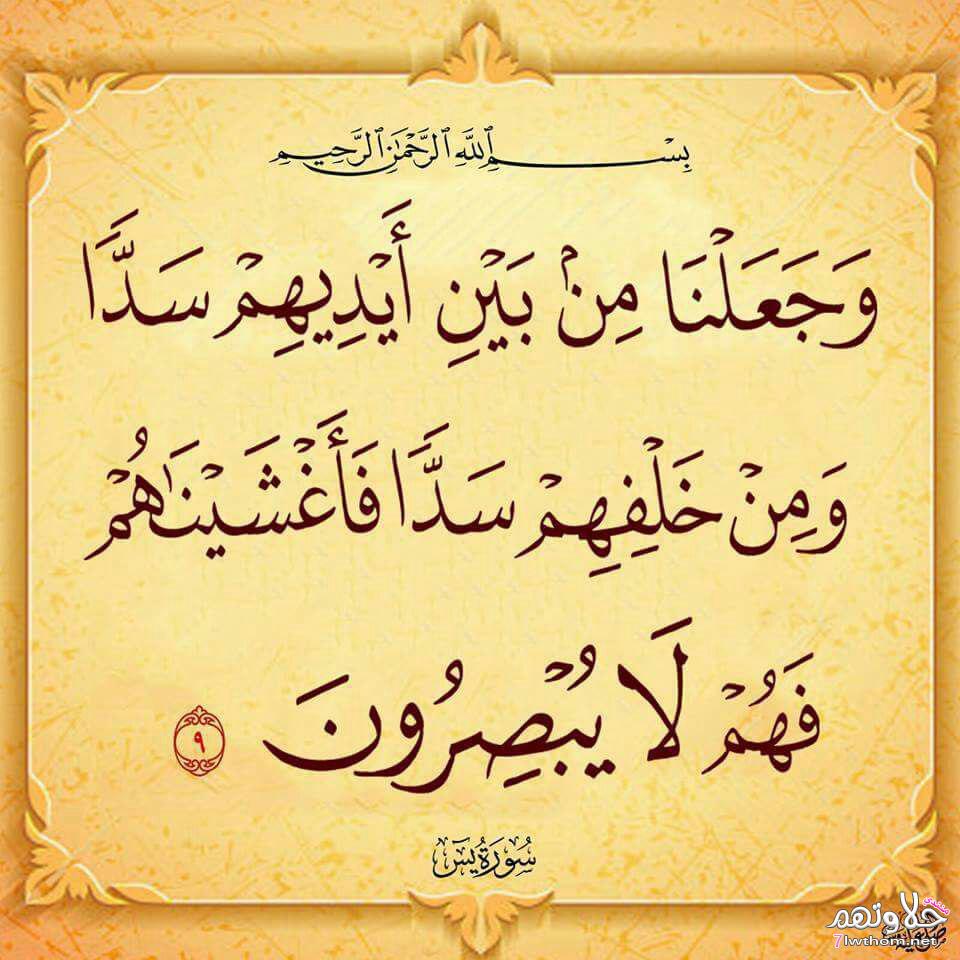 بِسْمِ ٱللَّهِ ٱلرَّحْمَٰنِ ٱلرَّحِيمِ
وَجَعَلْنَا مِنۢ بَيْنِ أَيْدِيهِمْ سَدًّا
وَمِنْ خَلْفِهِمْ سَدًّا فَأَغْشَيْنَٰهُمْ
فَهُمْ لَا يُبْصِرُونَ ٩
سُورَةُ يسٓ
منتدى
حلاوتهم
7lwthom.net